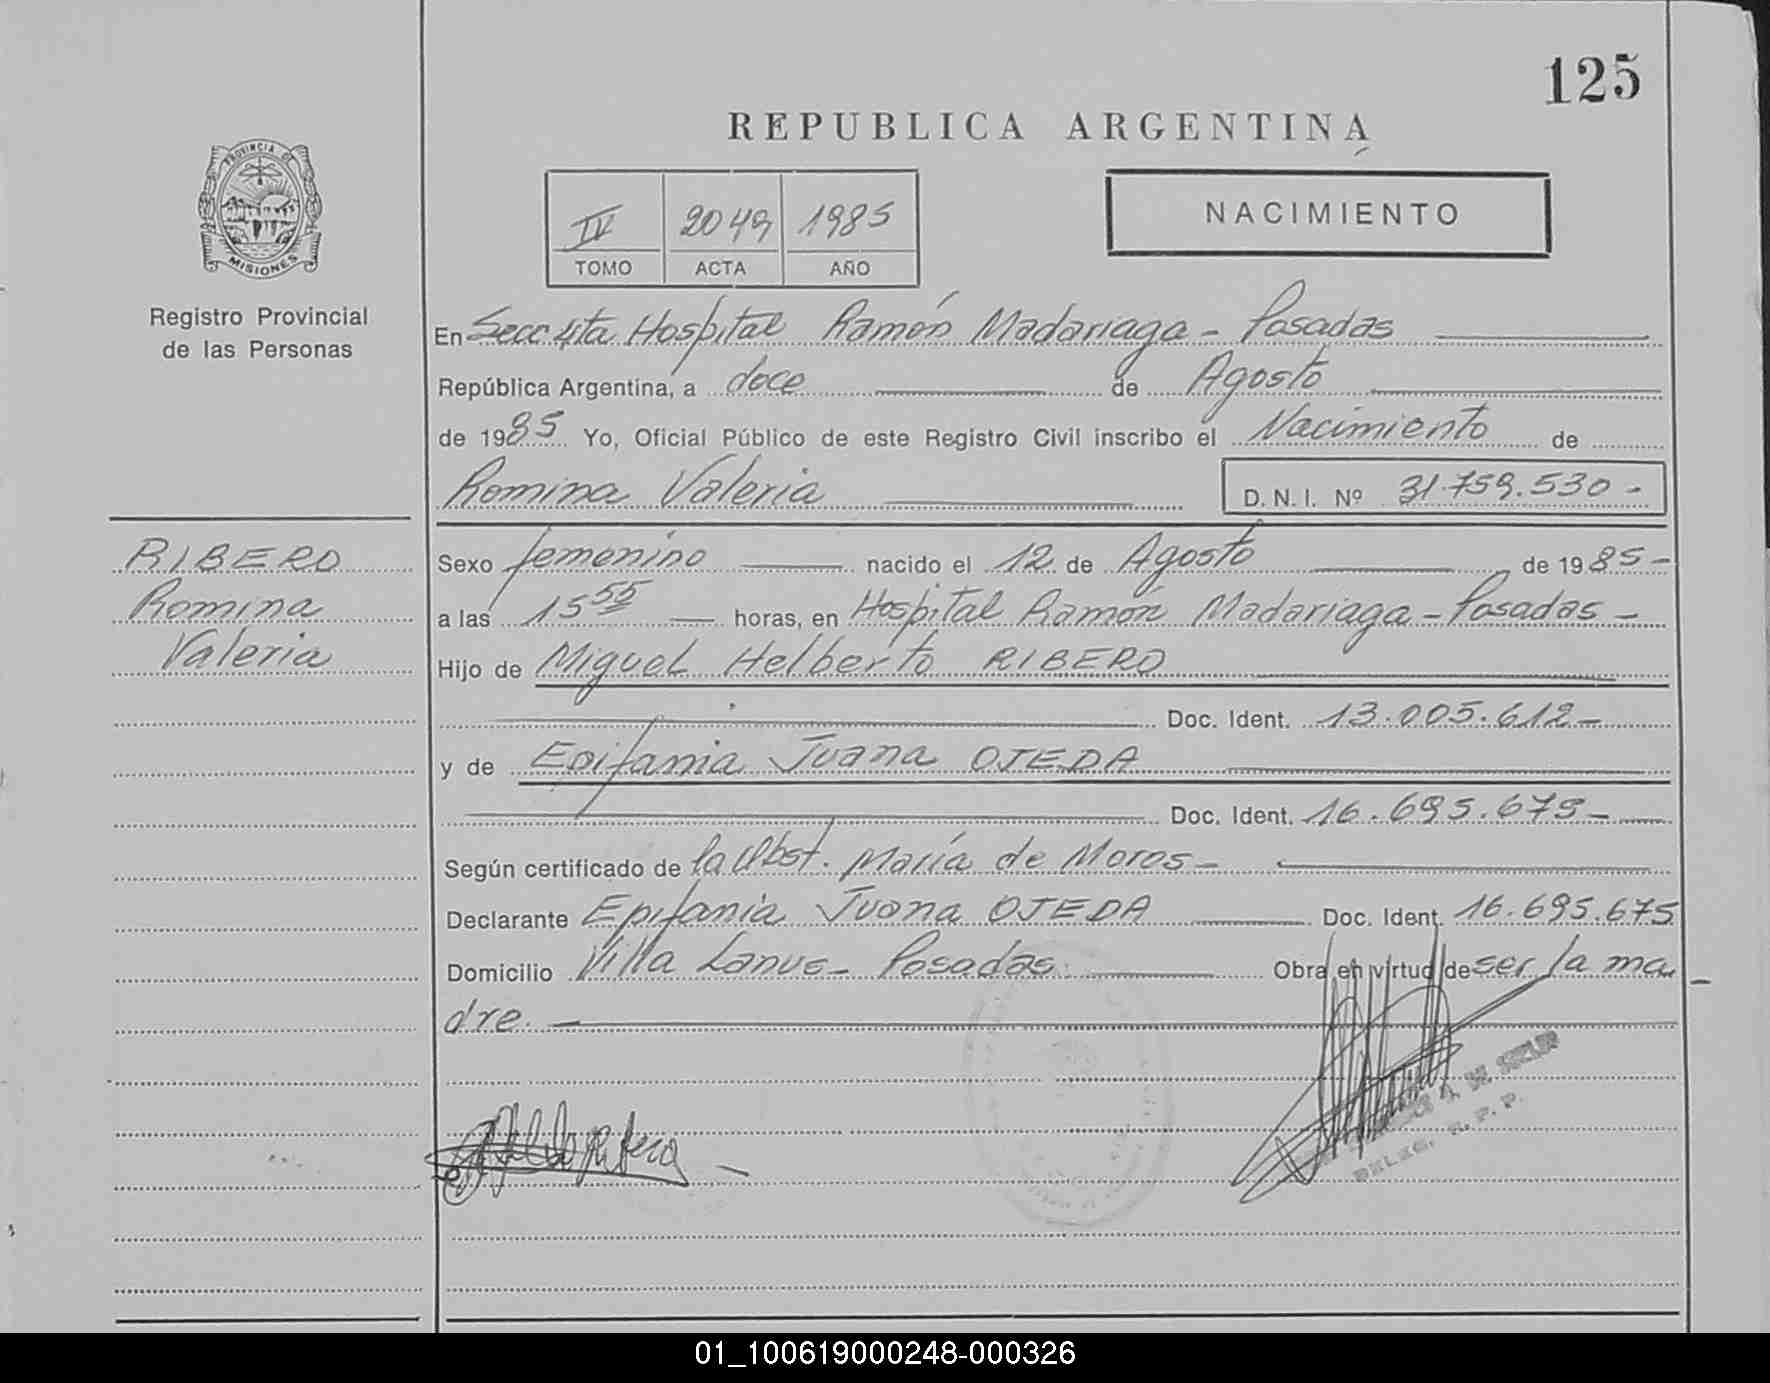 125
REPUBLICA ARGENTINA
PROVINCIA DE
MISIONES
Registro Provincial
de las Personas
IV 2049 1985
TOMO ACTA AÑO
NACIMIENTO
En Secc 4ta Hospital Ramón Madariaga - Posadas
República Argentina, a doce de Agosto
de 1985 Yo, Oficial Público de este Registro Civil inscribo el Nacimiento de
Romina Valeria D. N. I. Nº 31.759.530-
RIBERO
Romina
Valeria
Sexo femenino nacido el 12 de Agosto de 1985-
a las 15 55 horas, en Hospital Ramón Madariaga - Posadas -
Hijo de Miguel Helberto RIBERO
Doc. Ident. 13.005.612-
y de Epifania Juana OJEDA
Doc. Ident. 16.695.675-
Según certificado de la Obst. María de Moros-
Declarante Epifania Juana OJEDA Doc. Ident. 16.695.675
Domicilio Villa Lanus - Posadas Obra en virtud de ser la ma
dre.
01_100619000248-000326